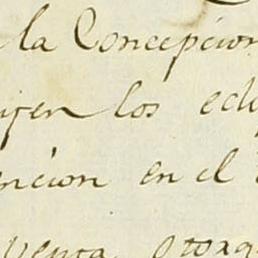 la Concepcion
en los ecl
ncion en el
venta otorg